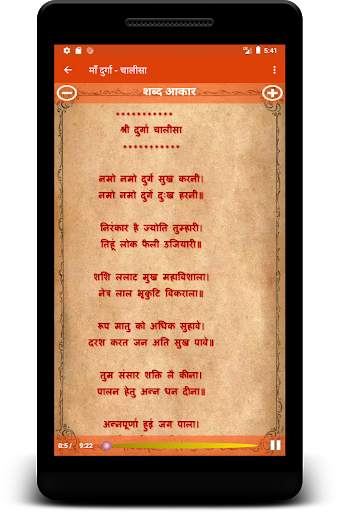 5:41
माँ दुर्गा - चालीसा
शब्द आकार
***********
श्री दुर्गा चालीसा
***********
नमो नमो दुर्गे सुख करनी।
नमो नमो दुर्गे दुःख हरनी॥
निरंकार है ज्योति तुम्हारी।
तिहूं लोक फैली उजियारी॥
शशि ललाट मुख महाविशाला।
नेत्र लाल भृकुटि विकराला॥
रूप मातु को अधिक सुहावे।
दरश करत जन अति सुख पावे॥
तुम संसार शक्ति लै कीना।
पालन हेतु अन्न धन दीना॥
अन्नपूर्णा हुई जग पाला।
0:5 / 9:22